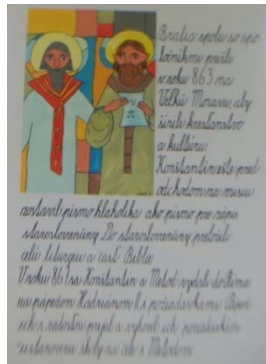 Bratia spolu so spo-
ločníkmi prišli
v roku 863 na
Veľkú Moravu, aby
šírili kresťanstvo
a kultúru.
Konštantín ešte pred
odchodom na misiu
zostavil písmo hlaholika ako písmo pre zápis
staroslovienčiny. Do staroslovienčiny preložili
celú liturgiu a časť Biblie.
V roku 867 sa Konštantín a Metod vydali do Ríma
za pápežom Hadriánom II. s požiadavkami. Pápež
ich s radosťou prijal a vyhovel ich požiadavkám
školy na čele s Metodom